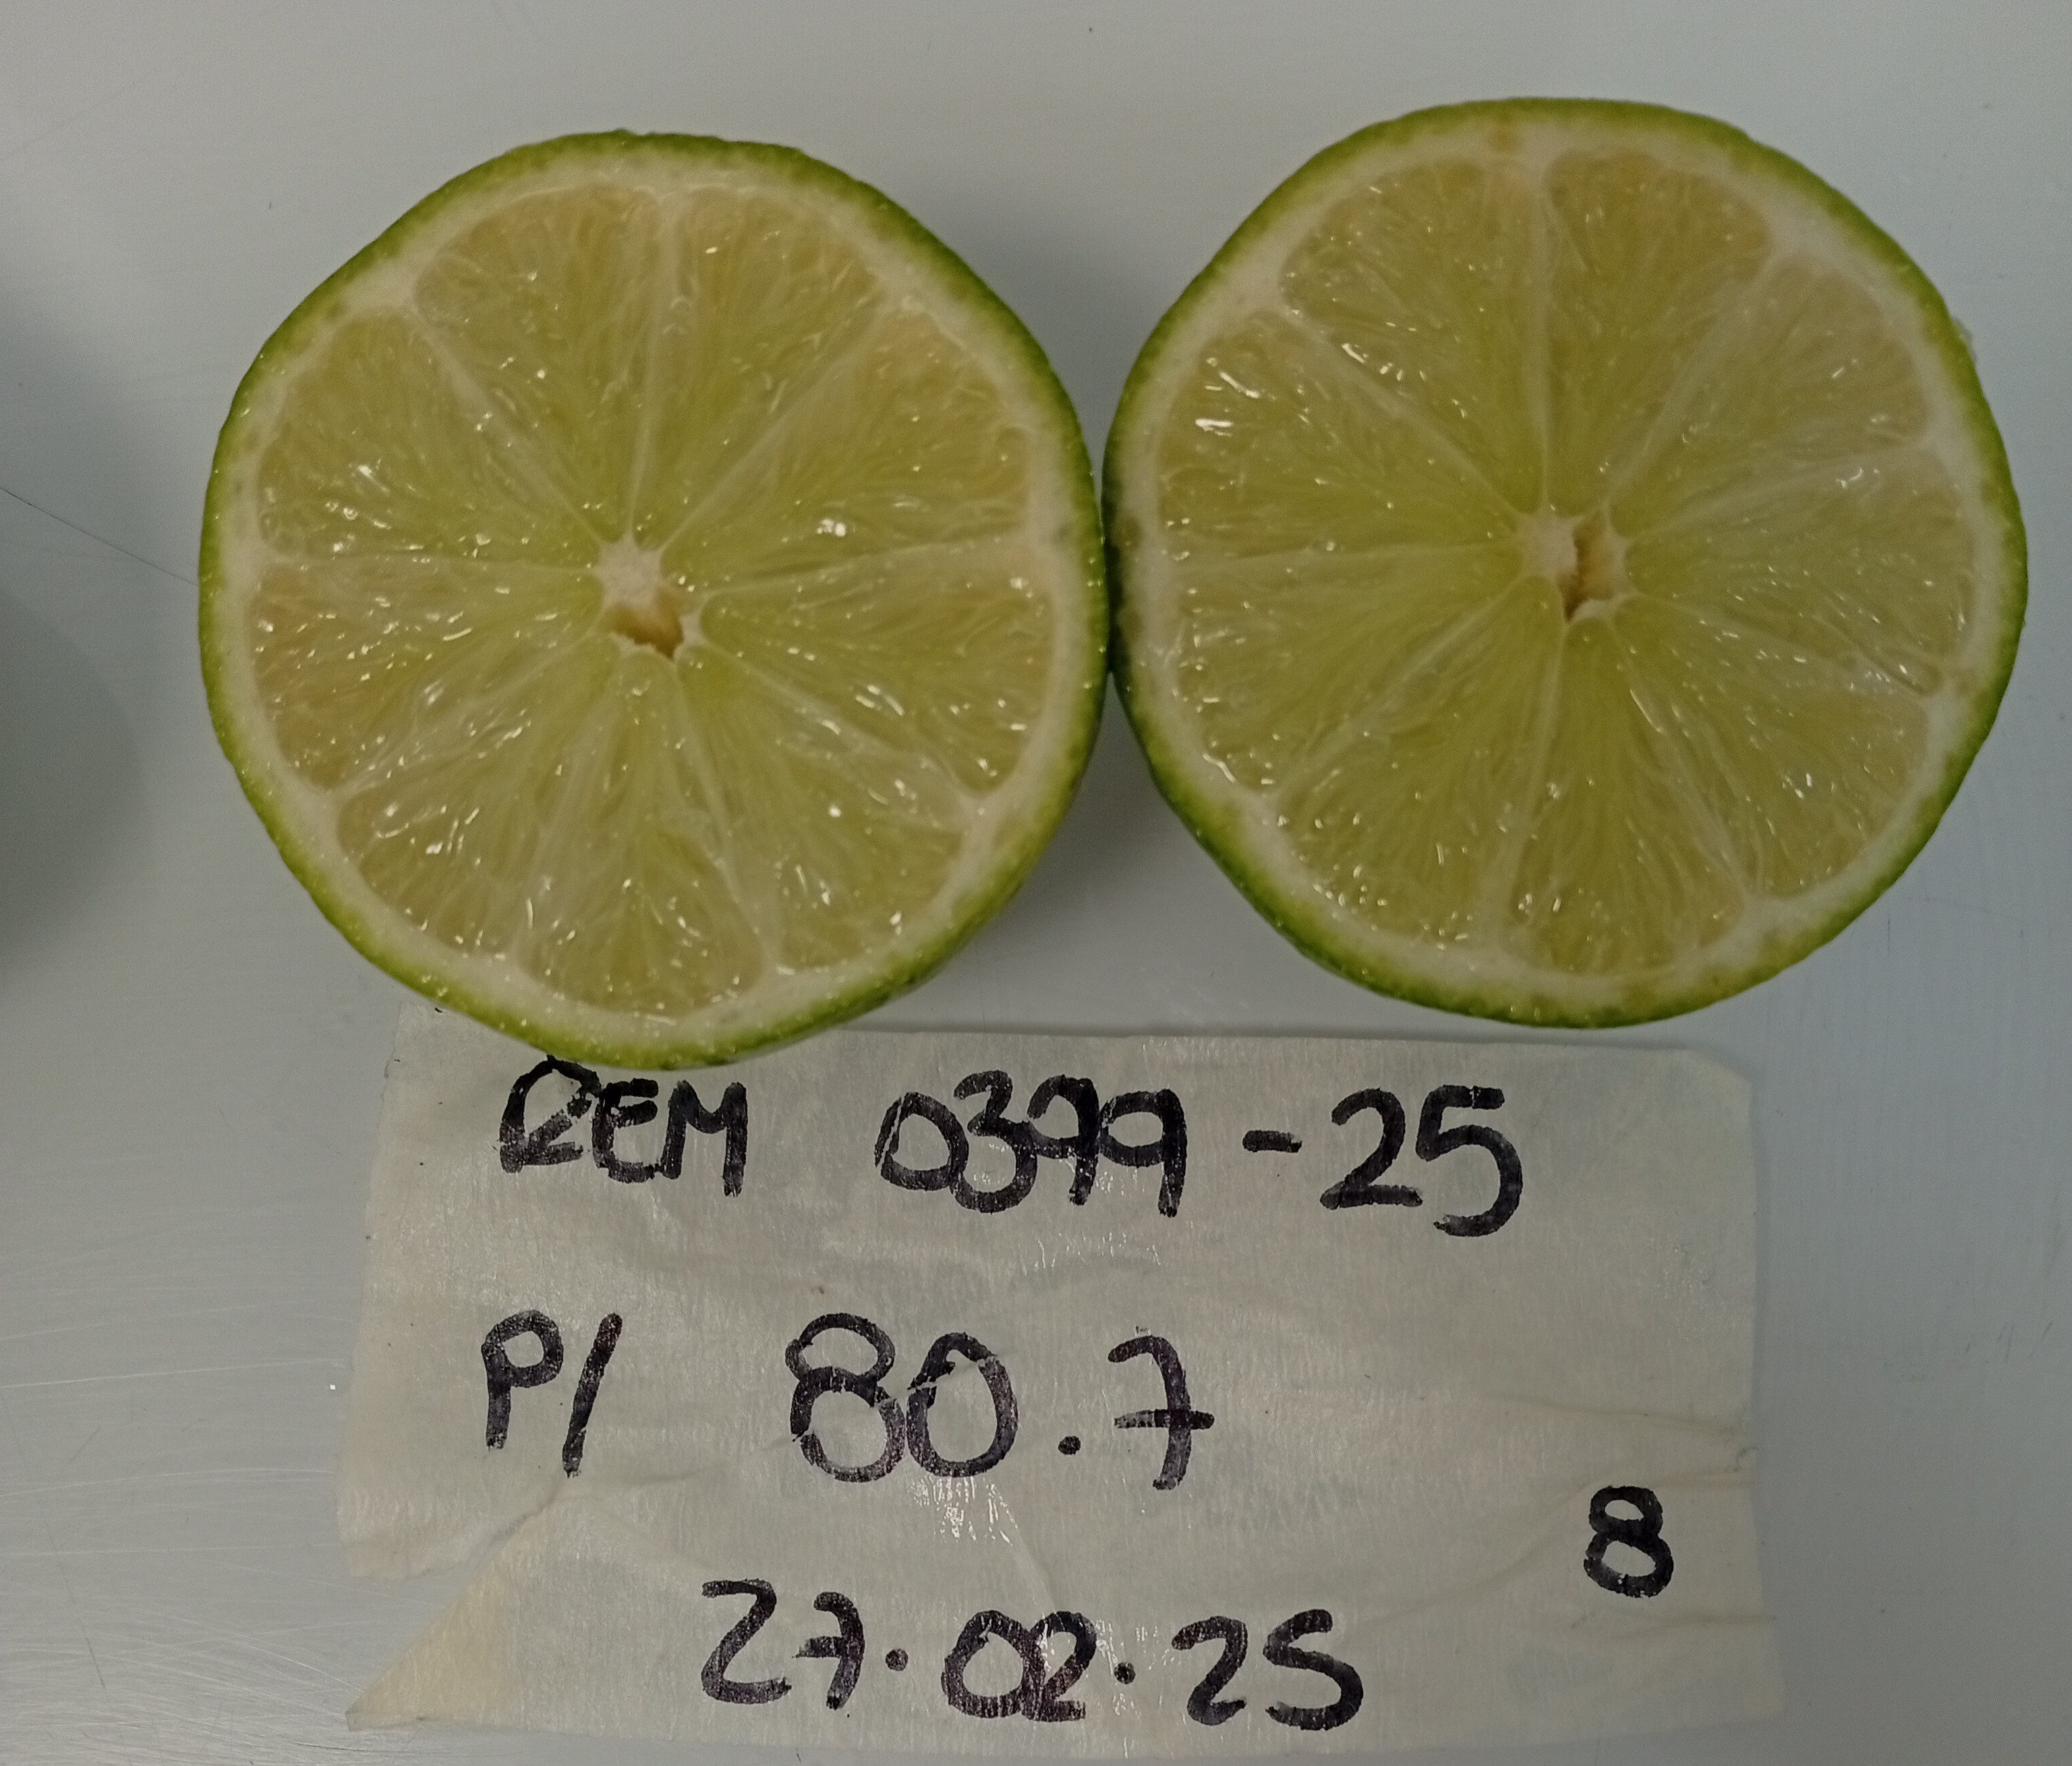 REM 0399-25
P/ 80.7
8
27.02.25